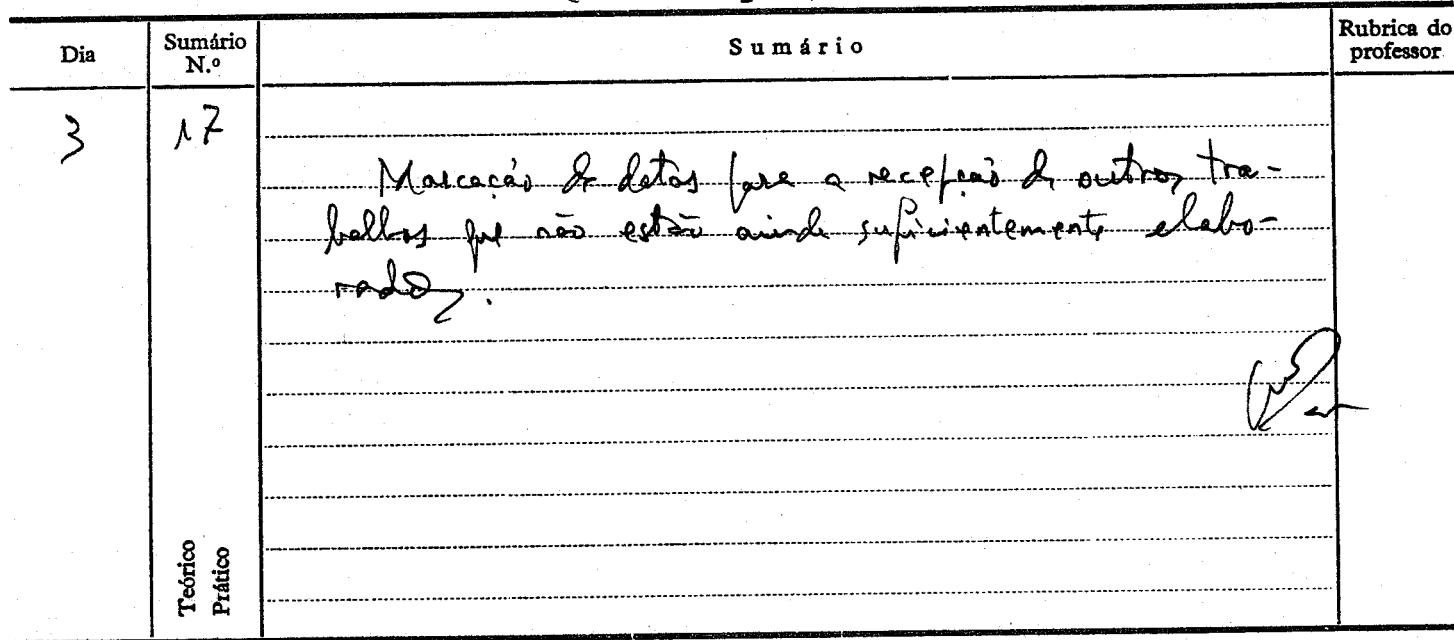 Dia
Sumário
N.º
Sumário
Rubrica do
professor
3
17
Marcação de datas para a recepção de outros tra-
balhos que não estão ainda suficientemente elabo-
rados.
Teórico
Prático